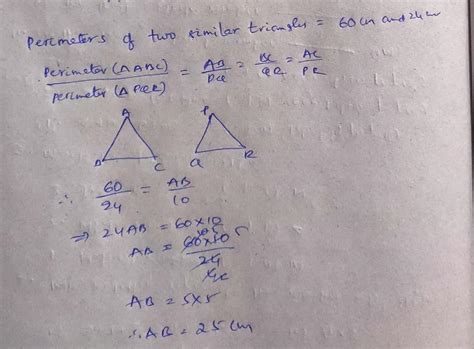 Perimeters of two similar triangles = 60 cm and 24 cm
Perimeter (△ABC) / Perimeter (△PQR) = AB/PQ = BC/QR = AC/PR
A P
B C Q R
∴ 60/24 = AB/10
⇒ 24AB = 60×10
AB = 60×10/24
AB = 5×5
∴ AB = 25 cm